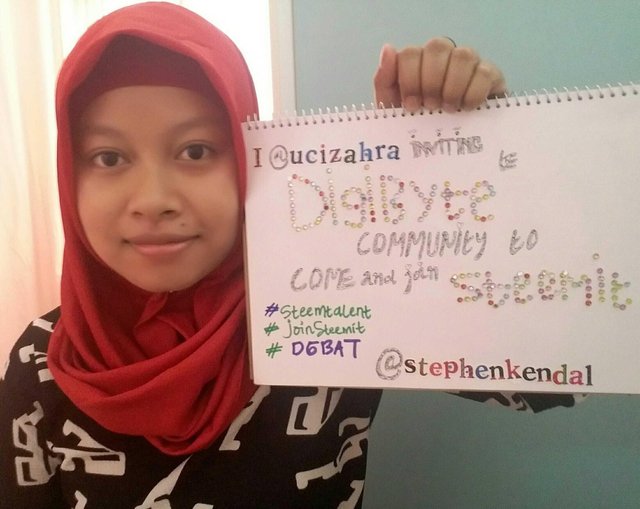 I @ucizahra INVITING to
DIGIBYte
COMMUNITY to
COME and join Steemit
#Steemtalent
#joinSteemit
# DEBAT
@stephenkendal